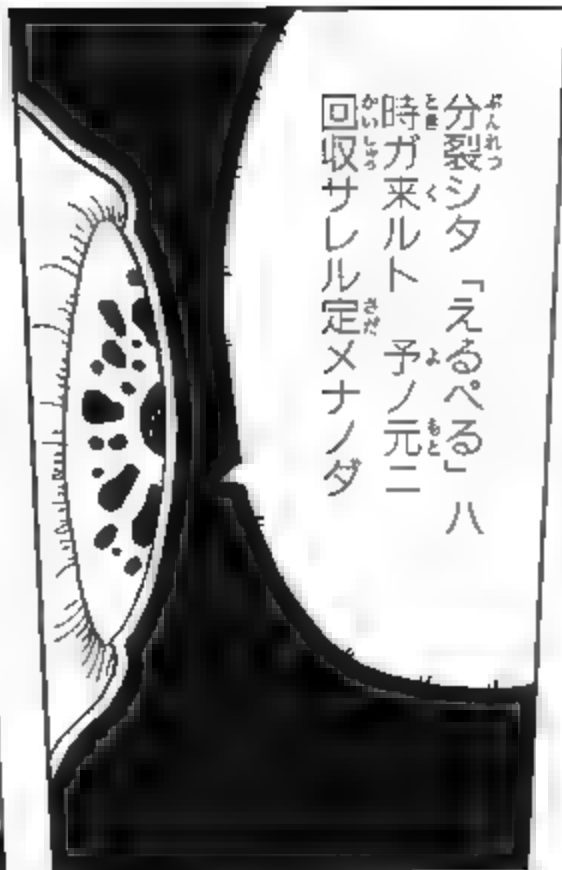 分裂シタ「えるぺる」ハ
時ガ来ルト　予ノ元ニ
回収サレル定メナノダ